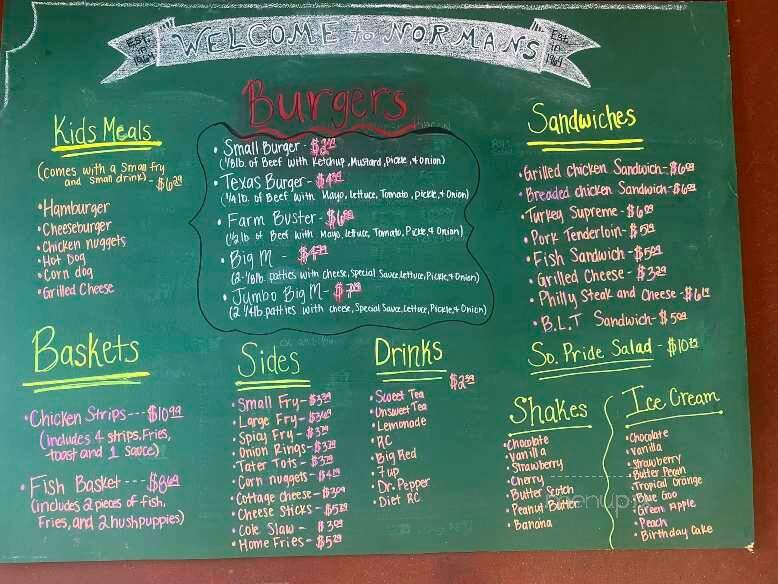 Est. in 1969
WELCOME to NORMANS
Est. in 1969
Kids Meals
(comes with a small fry
and small drink) - $6
Hamburger
Cheeseburger
Chicken nuggets
Hot Dog
Corn dog
Grilled Cheese
Burgers
Small Burger - $2
(1/8lb. of Beef with Ketchup, Mustard, Pickle, + Onion)
Texas Burger - $4
(1/4 lb. of Beef with Mayo, Lettuce, Tomato, Pickle, + Onion)
Farm Buster - $6
(1/2 lb. of Beef with Mayo, Lettuce, Tomato, Pickle, + Onion)
Big M - $4
(2-1/8lb. patties with cheese, Special Sauce, Lettuce, Pickle, + Onion)
Jumbo Big M - $7
(2 1/4lb. patties with cheese, Special Sauce, Lettuce, Pickle, + Onion)
Sandwiches
Grilled chicken Sandwich - $6
Breaded chicken Sandwich - $6
Turkey Supreme - $6
Pork Tenderloin - $5
Fish Sandwich - $5
Grilled Cheese - $3
Philly Steak and Cheese - $6
B.L.T Sandwich - $5
So. Pride Salad - $10
Baskets
Chicken Strips --- $10
(includes 4 strips, Fries,
toast and 1 sauce)
Fish Basket ---- $8
(includes 2 pieces of fish,
Fries, and 2 hushpuppies)
Sides
Small Fry - $3
Large Fry - $3
Spicy Fry - $3
Onion Rings - $3
Tater Tots - $3
Corn nuggets - $4
Cottage cheese - $3
Cheese Sticks - $5
Cole Slaw - $3
Home Fries - $5
Drinks
$2
Sweet Tea
Unsweet Tea
Lemonade
RC
Big Red
7 up
Dr. Pepper
Diet RC
Shakes
Chocolate
Vanilla
Strawberry
Cherry
Butter Scotch
Peanut Butter
Banana
Ice Cream
Chocolate
Vanilla
Strawberry
Butter Pecan
Tropical Orange
Blue Goo
Green Apple
Peach
Birthday Cake